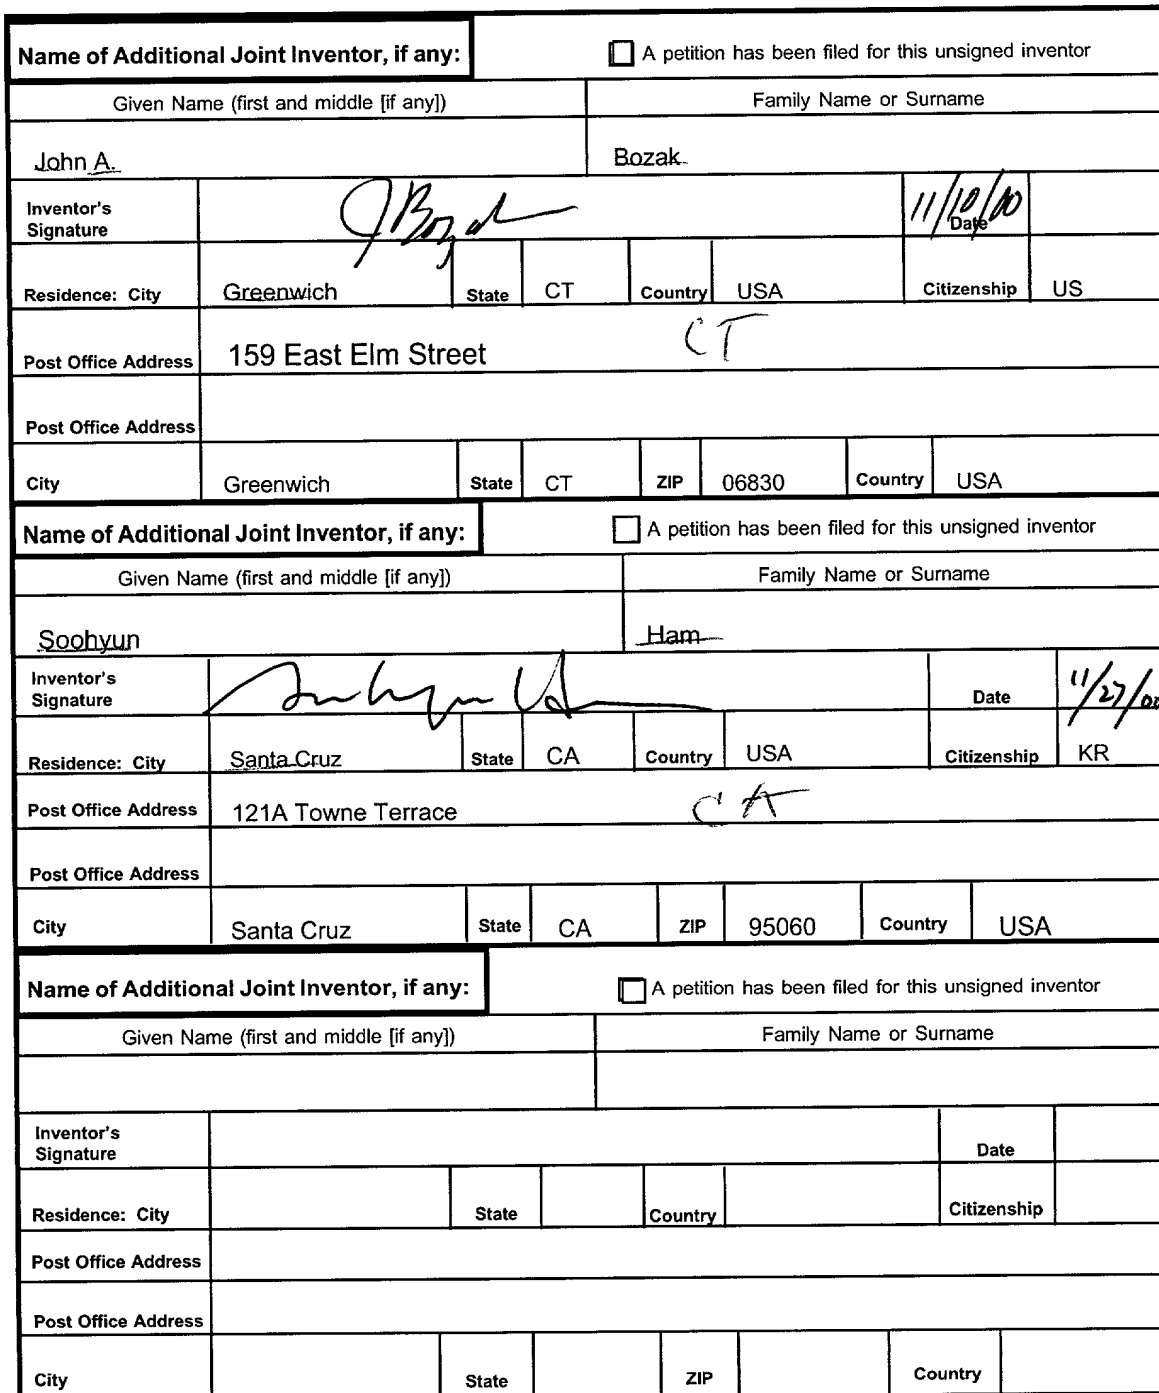 Name of Additional Joint Inventor, if any: A petition has been filed for this unsigned inventor
Given Name (first and middle [if any]) Family Name or Surname
John A. Bozak
Inventor's
Signature J Bozak 11/10/00 Date
Residence: City Greenwich State CT Country USA Citizenship US
Post Office Address 159 East Elm Street CT
Post Office Address
City Greenwich State CT ZIP 06830 Country USA
Name of Additional Joint Inventor, if any: A petition has been filed for this unsigned inventor
Given Name (first and middle [if any]) Family Name or Surname
Soohyun Ham
Inventor's
Signature Date 11/27/00
Residence: City Santa Cruz State CA Country USA Citizenship KR
Post Office Address 121A Towne Terrace CA
Post Office Address
City Santa Cruz State CA ZIP 95060 Country USA
Name of Additional Joint Inventor, if any: A petition has been filed for this unsigned inventor
Given Name (first and middle [if any]) Family Name or Surname
Inventor's
Signature Date
Residence: City State Country Citizenship
Post Office Address
Post Office Address
City State ZIP Country